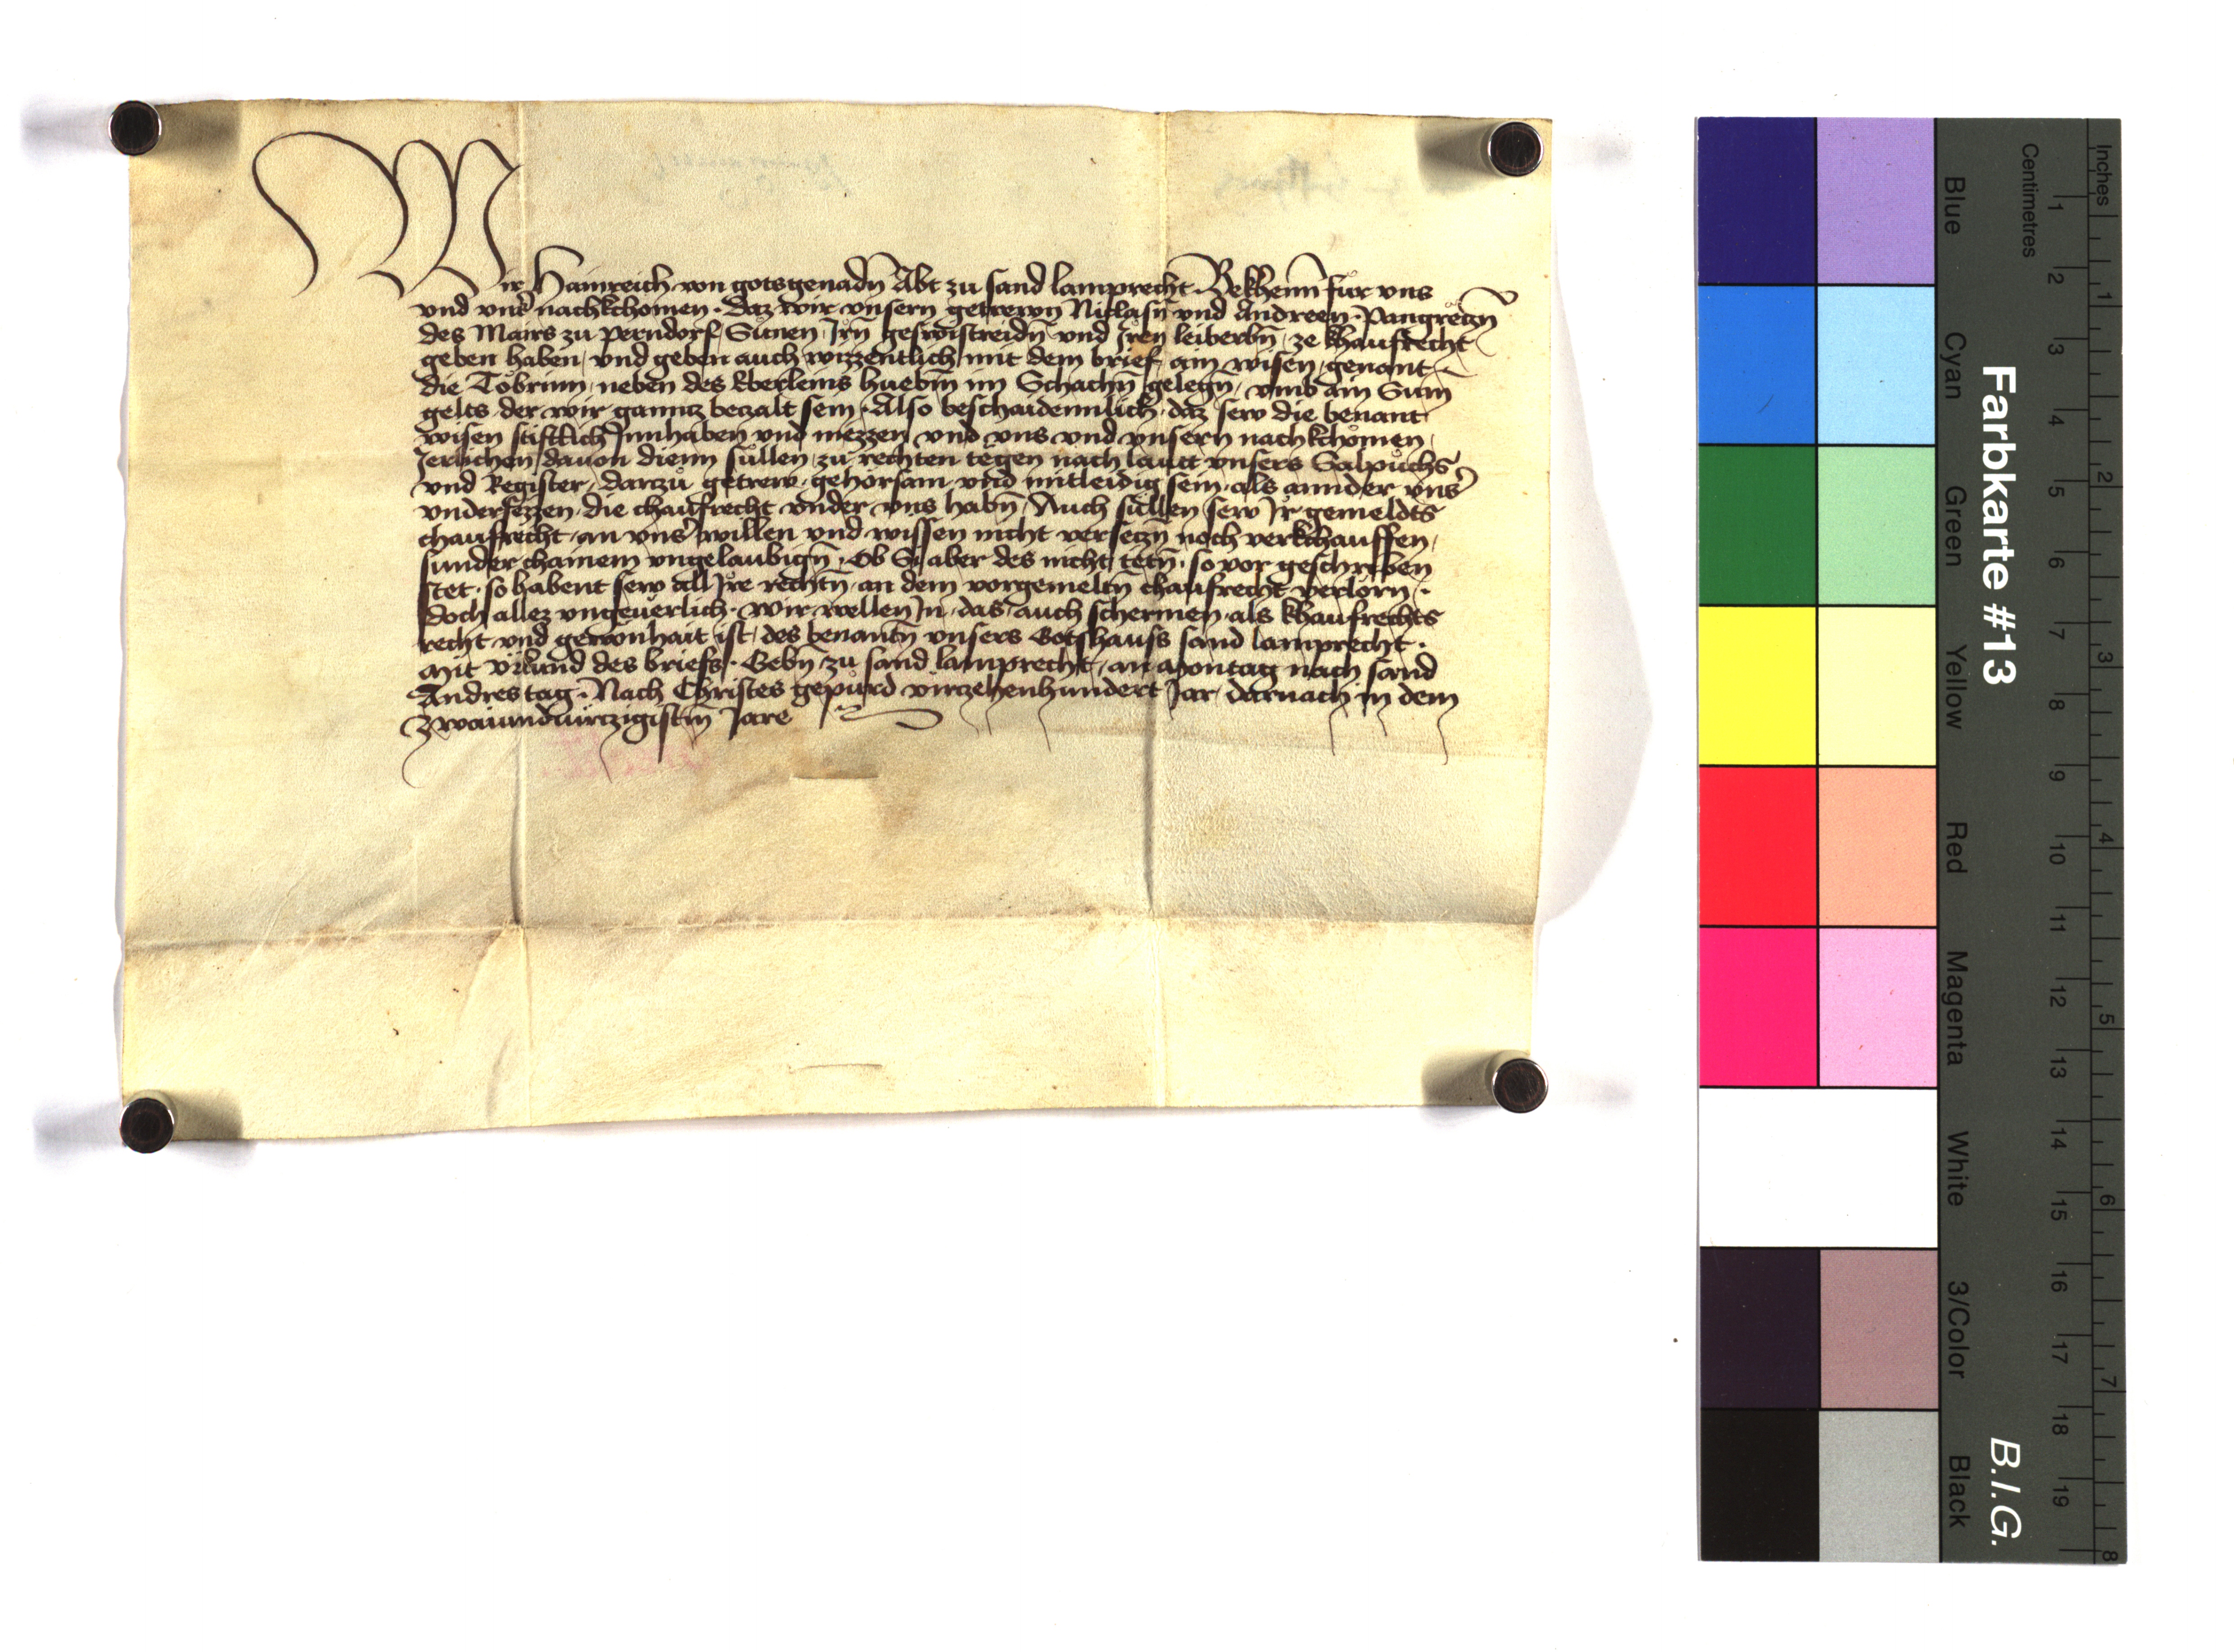 Wir Hainreich von gotsgenadn̄ Abt zu sand lamprecht Bekhenn̄ fúr vns
vnd vnsˀ nachkchomen. Daz wir vnsern getrewn̄ Niclasn̄ vnd Andreen. Pangreczn̄
des Mairs zu Perndorf Sünen Irn̄ geswistreidn̄ vnd Iren leiberbn̄ ze khaufrecht
geben haben, vnd geben auch wizzentlich mit dem brief, ain wisen, genant
die Tobrinn, neben des Eberleins huebn̄ im Schachn̄ gelegn̄, vmb ain Sum̄
gelts der wir ganncz beczalt sein. Also beschaidennlich, daz sew die benant
wisen stiftlich Innhaben vnd niezzen vnd vns vnd vnsern nachkchomen,
Jerlichen dauon dienn sullen, zu rechten tegen nach lautt vnsers Salpuchs
vnd Register, darczů getrew, gehorsam vnd mitleidig sein, als annder vnsˀ
vndersezzen, die chaufrecht vnder vns habn̄, Auch sullen sew Ir gemeldts
chaufrecht, an vnsˀ willen vnd wissen nicht verseczn̄ noch verkchauffen,
sunder chainem vngelaubign̄. Ob Si aber des nicht tetn̄. so vor geschriben
stet. so habent sew all Ire rechtn̄, an dem vorgemeltn̄ chaufrecht verlorn.
doch allez vngeuerlich. wir wellen In, das, auch schermen, als khaufrechts
recht vnd gewonhait ist, des benantn̄ vnsers Gotshauss sand lamprecht.
Mit vrkund des briefs. Gebn̄ zu sand lamprecht, an Montag nach sand
Andres tag. Nach Christes gepurd virczehenhundert Jar, darnach in dem
Zwaiundvirczigistn̄ Jare
Inches
Centimetres
Farbkarte #13
B.I.G.
Blue
Cyan
Green
Yellow
Red
Magenta
White
3/Color
Black
1 2 3 4 5 6 7 8 9 10 11 12 13 14 15 16 17 18 19
1 2 3 4 5 6 7 8